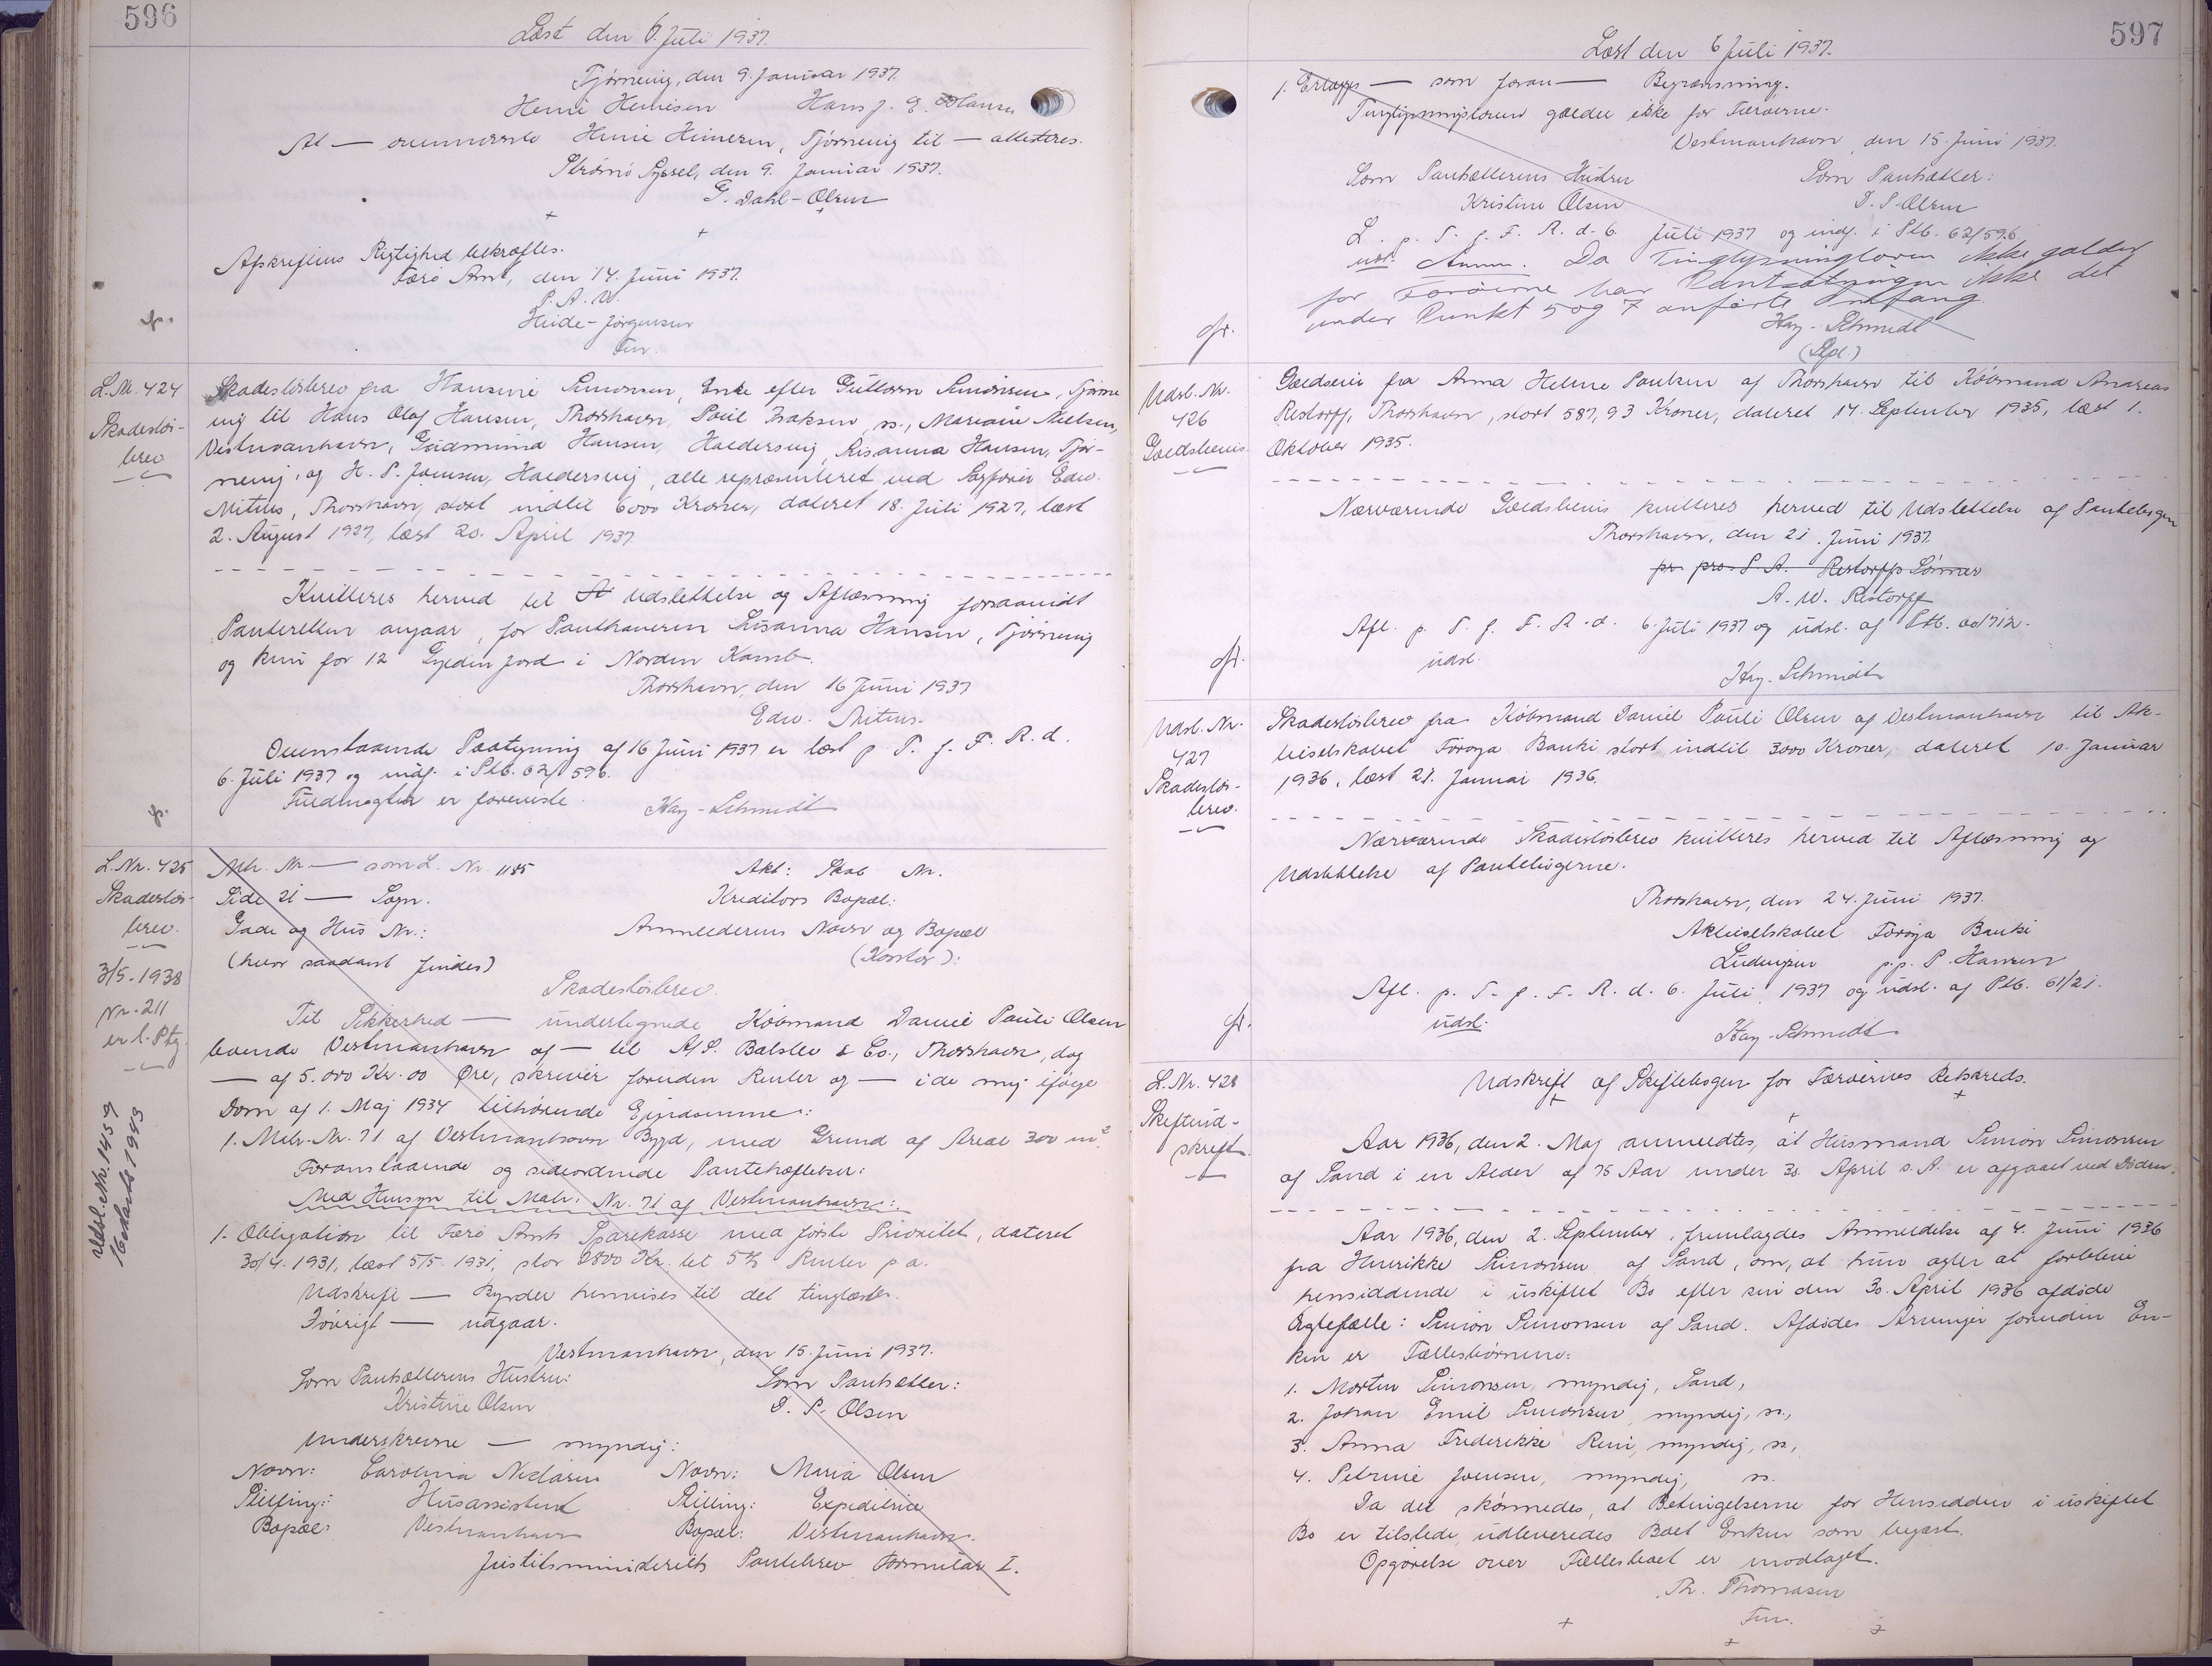 596
Læst den 6. Juli 1937.
Tjørnevig, den 9. Januar 1937.
Heine Heinesen Hans J. E. Hansen
At — ovennævnte Heine Heinesen, Tjørnevig til — attesteres.
Strømø Syssel, den 9. Januar 1937.
G. Dahl-Olsen
Afskriftens Rigtighed bekræftes.
Færø Amt, den 14. Juni 1937.
P. A. V.
Heide-Jørgensen
Fm.
L. Nr. 424
Skadesløs-
brev
Skadesløsbrev fra Hansine Simonsen, Enke efter Guttorm Simonsen, Tjørne
vig til Hans Olaf Hansen, Thorshavn, Poul Isaksen, ss., Mariane Nielsen,
Vestmanhavn, Gudmund Hansen, Haldersvig, Susanna Hansen, Tjør-
nevig, og H. P. Joensen, Haldersvig, alle repræsenteret ved Sagfører Edw.
Mitens, Thorshavn, stort indtil 6000 Kroner, dateret 18. Juli 1927, læst
2. August 1927, læst 20. April 1937.
Kvitteres herved til Udslettelse og Aflæsning forsaavidt
Panteretten angaar, for Panthaveren Susanna Hansen, Tjørnevig
og kun for 12 Gylden Jord i Norden Kamb.
Thorshavn, den 16 Juni 1937
Edw. Mitens.
Ovenstaaende Paategning af 16 Juni 1937 er læst p. T. f. F. R. d.
6. Juli 1937 og indf. i Ptb. 62/596.
Fuldmagten er foreviste.
Kay-Schmidt
L. Nr. 425
Skadesløs-
brev.
3/5-1938
Nr. 211
er l. Ptg.
Udsl. Nr. 1459
1943
Mtr. Nr — som L. Nr. 1185 Akt: Skab Nr.
Side 21 — Sogn. Kreditors Bopæl:
Gade og Hus Nr.: Anmelderens Navn og Bopæl
(hvor saadant findes) (Kontor):
Skadesløsbrev.
Til Sikkerhed — undertegnede Købmand Daniel Pauli Olsen
boende Vestmanhavn og — til A/S. Balslev & Co., Thorshavn, dog
— af 5.000 Kr. 00 Øre, skriver foruden Renter og — i de mig ifølge
Dom af 1. Maj 1934 tilhørende Ejendomme:
1. Matr. Nr. 71 af Vestmanhavn Bygd, med Grund af Areal 300 m².
Foranstaaende og sideordnede Pantehæftelser:
Med Hensyn til Matr. Nr. 71 af Vestmanhavn:
1. Obligation til Færø Amts Sparekasse med første Prioritet, dateret
30/4. 1931, læst 5/5. 1931, stor 2800 Kr. til 5% Renter p a.
Udskrift — Byrder henvises til det tinglæste.
Iøvrigt — udgaar.
Vestmanhavn, den 15. Juni 1937.
Som Pantsætterens Hustru: Som Pantsætter:
Kristine Olsen D. P. Olsen
Underskrevne — myndig:
Navn: Carolina Nidarå Navn: Maria Olsen
Stilling: Husassistent Stilling: Expeditrice
Bopæl: Vestmanhavn Bopæl: Vestmanhavn.
Justitsministeriets Pantebrev Formular I.
597
Læst den 6 Juli 1937.
1. — som foran — Begrænsning.
Tinglysningsloven gælder ikke for Færøerne.
Vestmanhavn, den 15. Juni 1937.
Som Pantsætterens Hustru Som Pantsætter:
Kristine Olsen D. P. Olsen
L. p. T. f. F. R. d. 6. Juli 1937 og indf. i Ptb. 62/596.
udsl. Anm. Da Tinglysningsloven ikke gælder
for Færøerne har Pantsætningen ikke det
under Punkt 5 og 7 anførte Omfang.
Kay-Schmidt
Udsl. Nr.
426
Gældsbevis
Gældsevis fra Anna Helene Poulsen af Thorshavn til Købmand Andreas
Restorff, Thorshavn, stort 587,93 Kroner, dateret 14. September 1935, læst 1.
Oktober 1935.
Nærværende Gældsbevis kvitteres herved til Udslettelse af Pantebogen
Thorshavn, den 21. Juni 1937.
pr. pro. P A. Restorffs Sønner
A. W. Restorff
Afl. p. T. f. F. R. d. 6. Juli 1937 og udsl. af Ptb. 60/712.
udsl.
Kay-Schmidt
Udsl. Nr.
427
Skadesløs-
brev.
Skadesløsbrev fra Købmand Daniel Pauli Olsen af Vestmanhavn til Ak-
tieselskabet Føroya Banki stort indtil 3000 Kroner, dateret 10. Januar
1936, læst 21. Januar 1936.
Nærværende Skadesløsbrev kvitteres herved til Aflæsning og
Udslettelse af Pantebøgerne.
Thorshavn, den 24. Juni 1937.
Aktieselskabet Føroya Banki
Ludvigsen p.p. P. Hansen
Afl. p. T. f. F. R. d. 6. Juli 1937 og udsl. af Ptb. 61/21.
udsl.
Kay-Schmidt
L. Nr. 428
Skifteud-
skrift
Udskrift af Skiftebogen for Færøernes Retskreds.
Aar 1936, den 2. Maj anmeldtes, at Husmand Simon Simonsen
af Sand i en Alder af 75 Aar under 30. April s. A. er afgaaet ved Døden.
Aar 1936, den 2. September, fremlagdes Anmeldelse af 4. Juni 1936
fra Henrikke Simonsen af Sand, om, at hun agter at forblive
hensiddende i uskiftet Bo efter sin den 30. April 1936 afdøde
Ægtefælle: Simon Simonsen af Sand. Afdødes Arvinger foruden En-
ken er Fællesbørnene:
1. Morten Simonsen, myndig, Sand,
2. Johan Emil Simonsen, myndig, ss.,
3. Anna Frederikke Reni, myndig, ss.,
4. Petrine Joensen, myndig, ss.
Da det skønnedes, at Betingelserne for Hensidden i uskiftet
Bo er tilstede, udleveredes Boet Enken som begært.
Opgørelse over Fællesboet er modtaget.
Th. Thomasen
Fm.